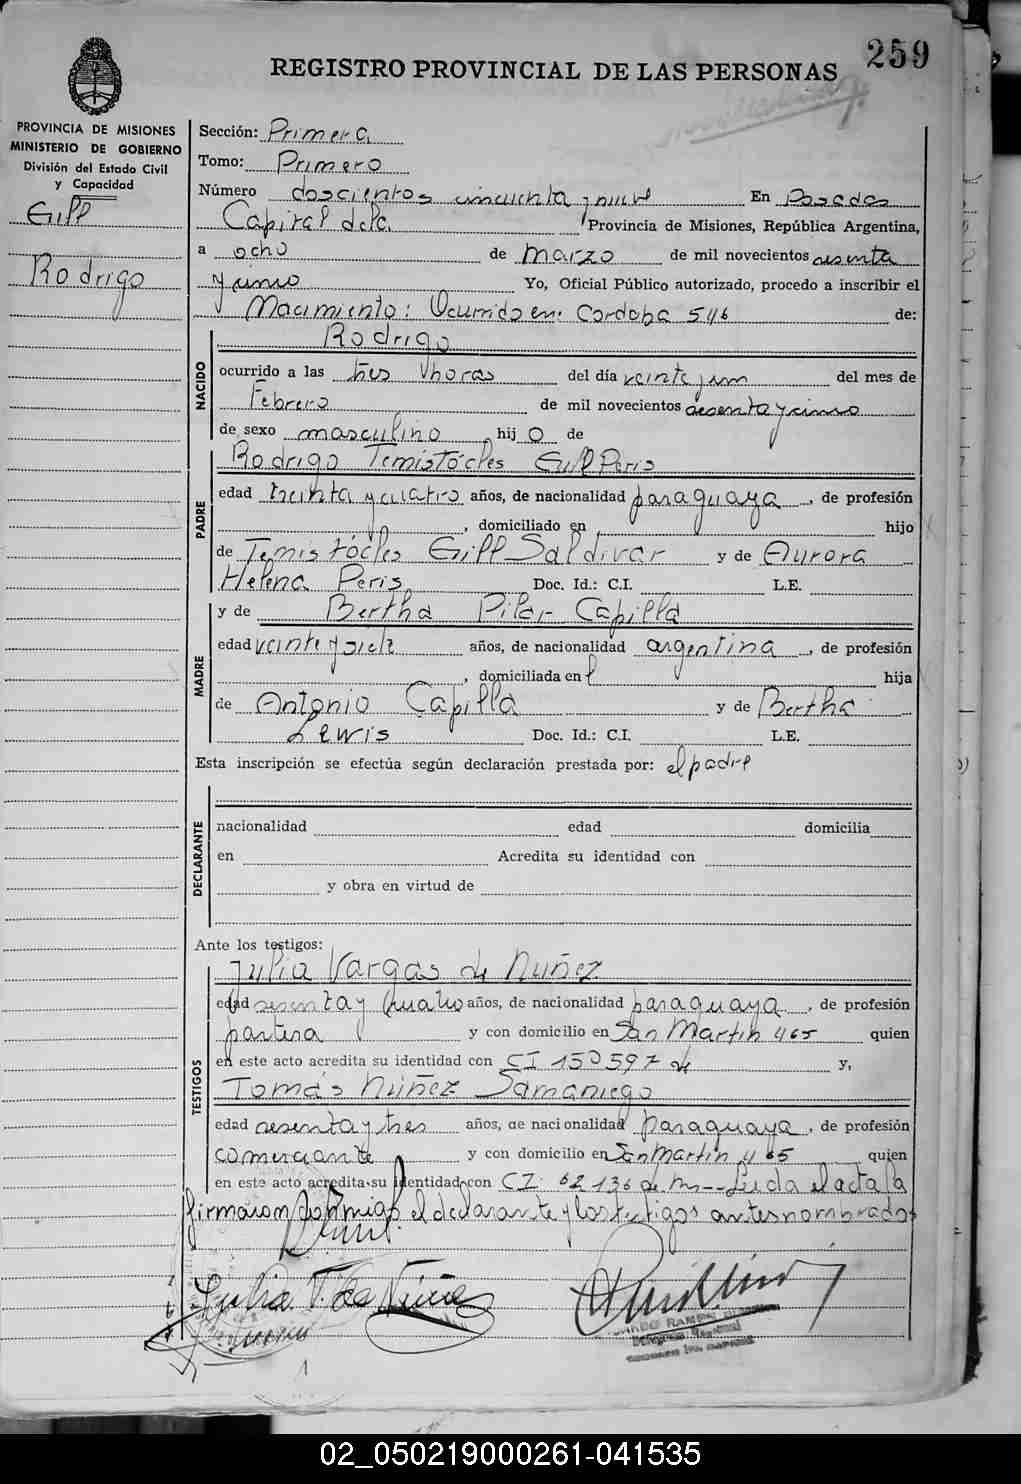 259
REGISTRO PROVINCIAL DE LAS PERSONAS
PROVINCIA DE MISIONES
MINISTERIO DE GOBIERNO
División del Estado Civil
y Capacidad
Gill
Rodrigo
Sección: Primera
Tomo: Primero
Número doscientos cincuenta y nueve En Posadas
Capital de la Provincia de Misiones, República Argentina,
a ocho de marzo de mil novecientos sesenta
y cinco Yo, Oficial Público autorizado, procedo a inscribir el
Nacimiento: Ocurrido en: Cordoba 546 de:
Rodrigo
NACIDO
ocurrido a las tres horas del día veinte y un del mes de
Febrero de mil novecientos sesenta y cinco
de sexo masculino hij o de
Rodrigo Temistócles Gill Peris
PADRE
edad treinta y cuatro años, de nacionalidad paraguaya, de profesión
, domiciliado en hijo
de Temistócles Gill Saldivar y de Aurora
Helena Peris Doc. Id.: C.I. L.E.
y de Bertha Pilar Capilla
MADRE
edad veinte y siete años, de nacionalidad argentina, de profesión
, domiciliada en hija
de Antonio Capilla y de Bertha
Lewis Doc. Id.: C.I. L.E.
Esta inscripción se efectúa según declaración prestada por: el padre
DECLARANTE
nacionalidad edad domicilia
en Acredita su identidad con
y obra en virtud de
Ante los testigos:
Julia Vargas de Nuñez
TESTIGOS
edad sesenta y cuatro años, de nacionalidad paraguaya, de profesión
partera y con domicilio en San Martín 465 quien
en este acto acredita su identidad con CI 150597 y,
Tomás Núñez Samaniego
edad sesenta y tres años, de nacionalidad paraguaya, de profesión
comerciante y con domicilio en San Martín 465 quien
en este acto acredita su identidad con CI 62136 de Ms-- Leida el acta la
firmaron conmigo el declarante y los testigos antes nombrados
Julia V. de Núñez
02_050219000261-041535